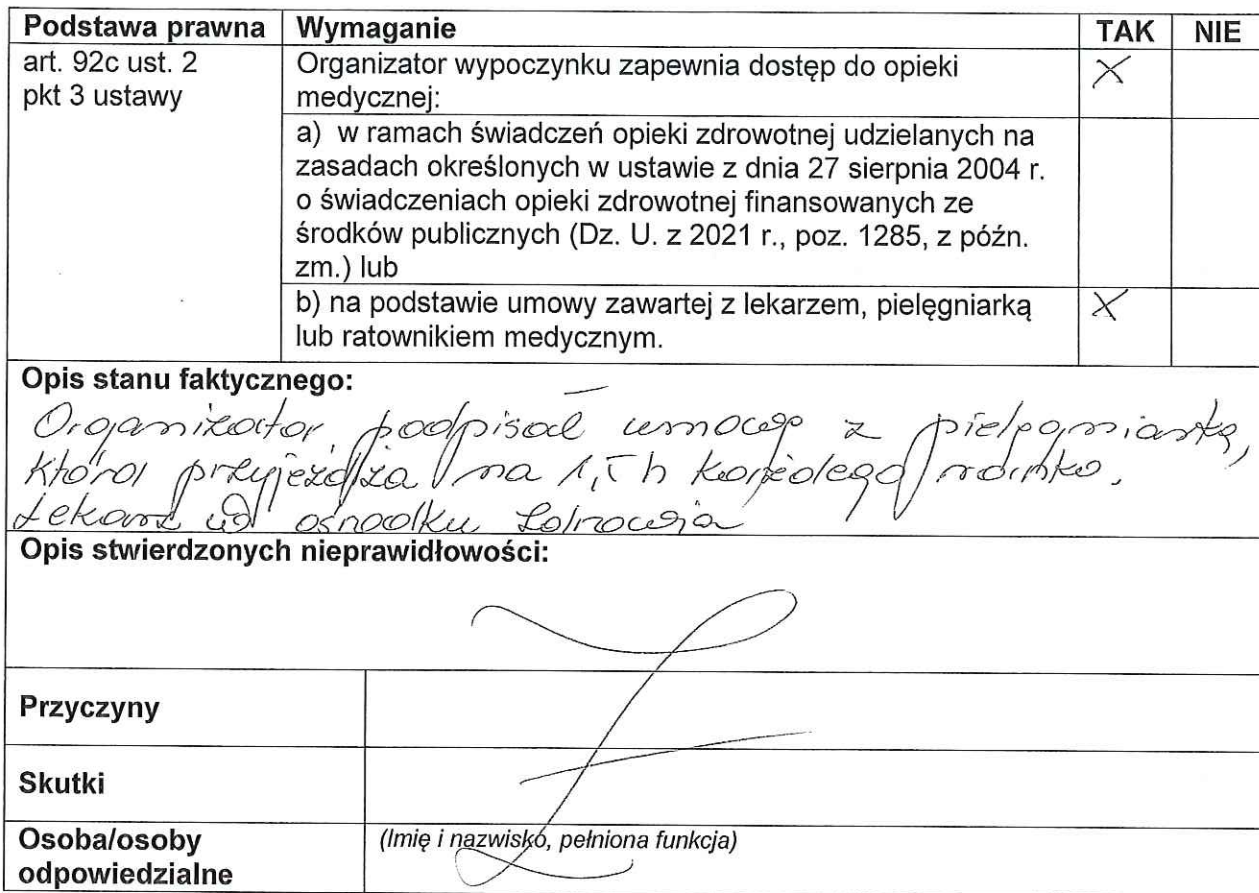 Podstawa prawna Wymaganie TAK NIE
art. 92c ust. 2
pkt 3 ustawy
Organizator wypoczynku zapewnia dostęp do opieki
medycznej: X
a) w ramach świadczeń opieki zdrowotnej udzielanych na
zasadach określonych w ustawie z dnia 27 sierpnia 2004 r.
o świadczeniach opieki zdrowotnej finansowanych ze
środków publicznych (Dz. U. z 2021 r., poz. 1285, z późn.
zm.) lub
b) na podstawie umowy zawartej z lekarzem, pielęgniarką
lub ratownikiem medycznym. X
Opis stanu faktycznego:
Organizator podpisał umowę z pielęgniarką,
która przyjeżdża na 1,5 h każdego
Lekarz ośrodku zdrowia
Opis stwierdzonych nieprawidłowości:
Przyczyny
Skutki
Osoba/osoby
odpowiedzialne
(Imię i nazwisko, pełniona funkcja)